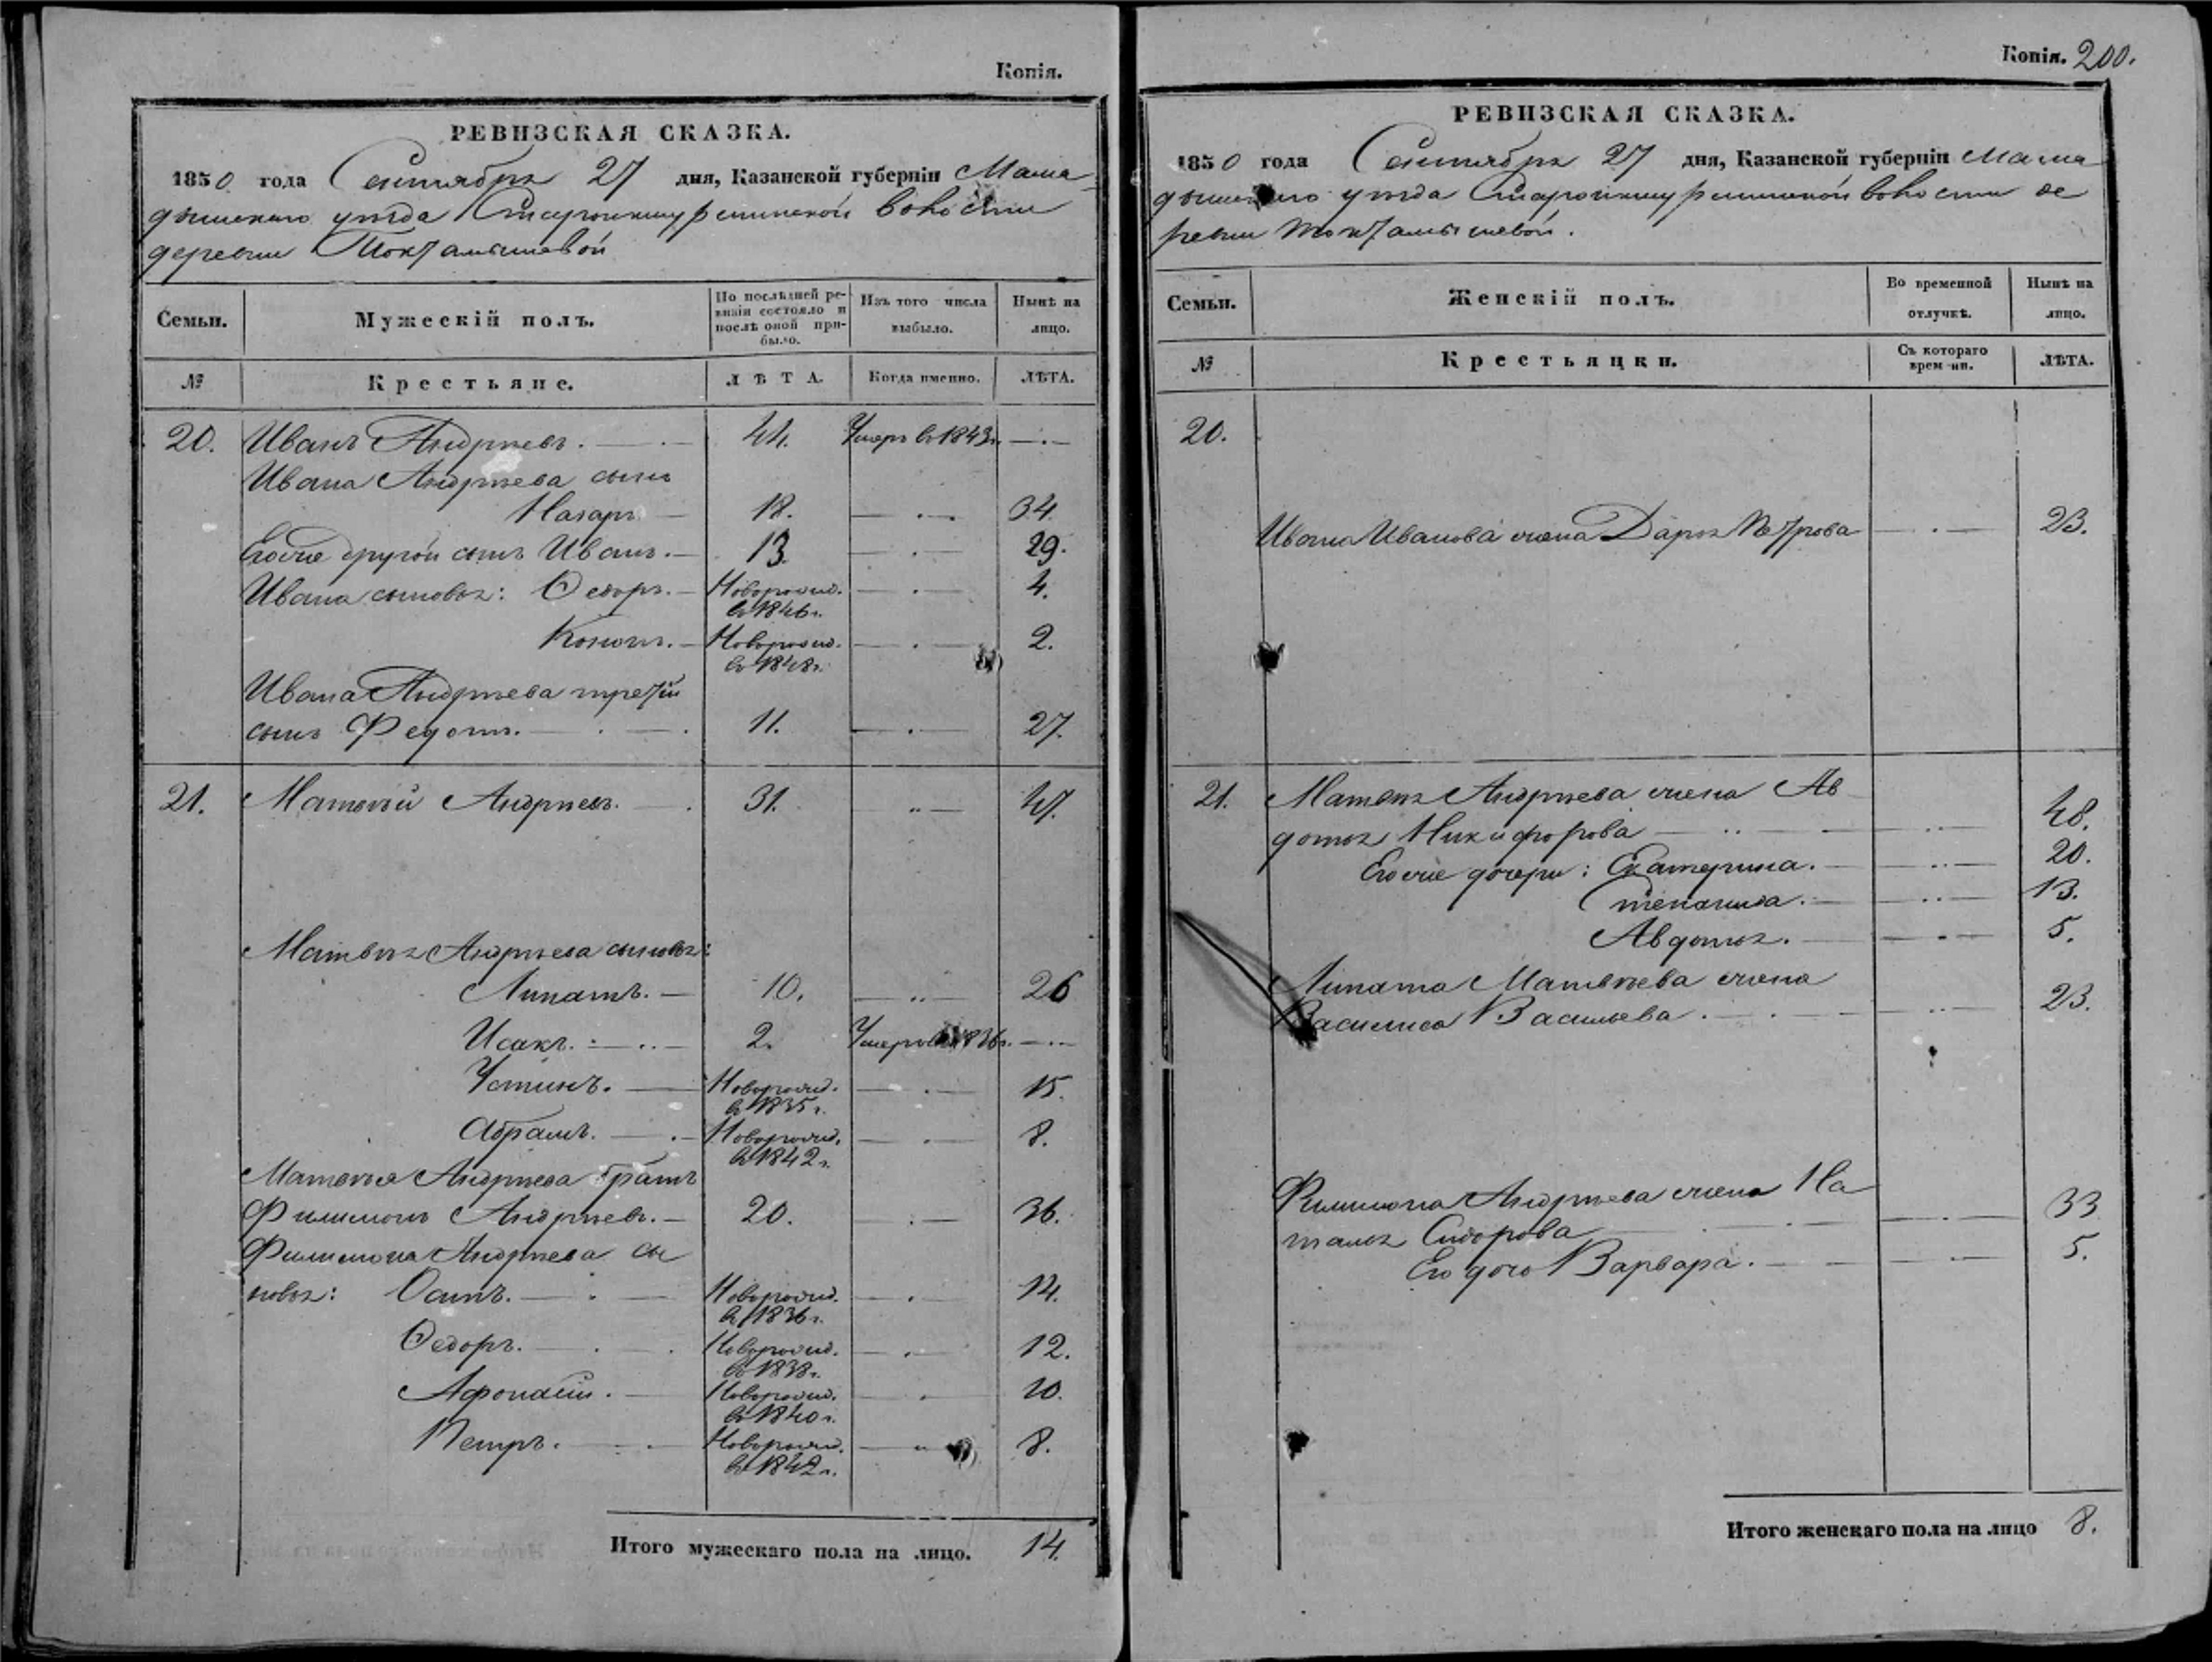 Копія.
РЕВИЗСКАЯ СКАЗКА.
1850 года Сентября 27 дня, Казанской губерніи Мама-
дышскаго уѣзда волости
деревни Токтамышевой
Семьи.
Мужескій полъ.
По послѣдней ре-
визіи состояло и
послѣ оной при-
было.
Изъ того числа
выбыло.
Нынѣ на
лицо.
№
Крестьяне.
ЛѢТА.
Когда именно.
ЛѢТА.
20. Иванъ Андреевъ. 44. Умеръ въ 1843 г.
Ивана Андреева сынъ
Назаръ 18. 34.
Его же другой сынъ Иванъ. 13. 29.
Ивана сыновья: Ѳедоръ. Новорожд. 4.
въ 1846 г.
Кононъ. Новорожд. 2.
въ 1848 г.
Ивана Андреева третій
сынъ Федотъ. 11. 27.
21. Матвѣй Андреевъ. 31. 47.
Матвѣя Андреева сыновья:
Липатъ. 10. 26
Исакъ. 2. Умеръ въ 1836 г.
Устинъ. Новорожд. 15.
въ 1835 г.
Абрамъ. Новорожд. 8.
въ 1842 г.
Матвѣя Андреева братъ
Филимонъ Андреевъ. 20. 36.
Филимона Андреева сы
новья: Осипъ. Новорожд. 14.
въ 1836 г.
Ѳедоръ. Новорожд. 12.
въ 1838 г.
Афонасій. Новорожд. 10.
въ 1840 г.
Петръ. Новорожд. 8.
въ 1842 г.
Итого мужескаго пола на лицо. 14.
Копія. 200.
РЕВИЗСКАЯ СКАЗКА.
1850 года Сентября 27 дня, Казанской губерніи Мама
дышскаго уѣзда волости де
ревни Токтамышевой.
Семьи.
Женскій полъ.
Во временной
отлучкѣ.
Нынѣ на
лицо.
№
Крестьянки.
Съ котораго
времени.
ЛѢТА.
20.
Ивана Иванова жена Дарья Петрова 23.
21. Матвѣя Андреева жена Ав
дотья Никифорова 48.
Его же дочери: Екатерина. 20.
Степанида. 13.
Авдотья. 5.
Липата Матвѣева жена
Василиса Васильева. 23.
Филимона Андреева жена На
талья Сидорова 33
Его дочь Варвара. 5.
Итого женскаго пола на лицо 8.